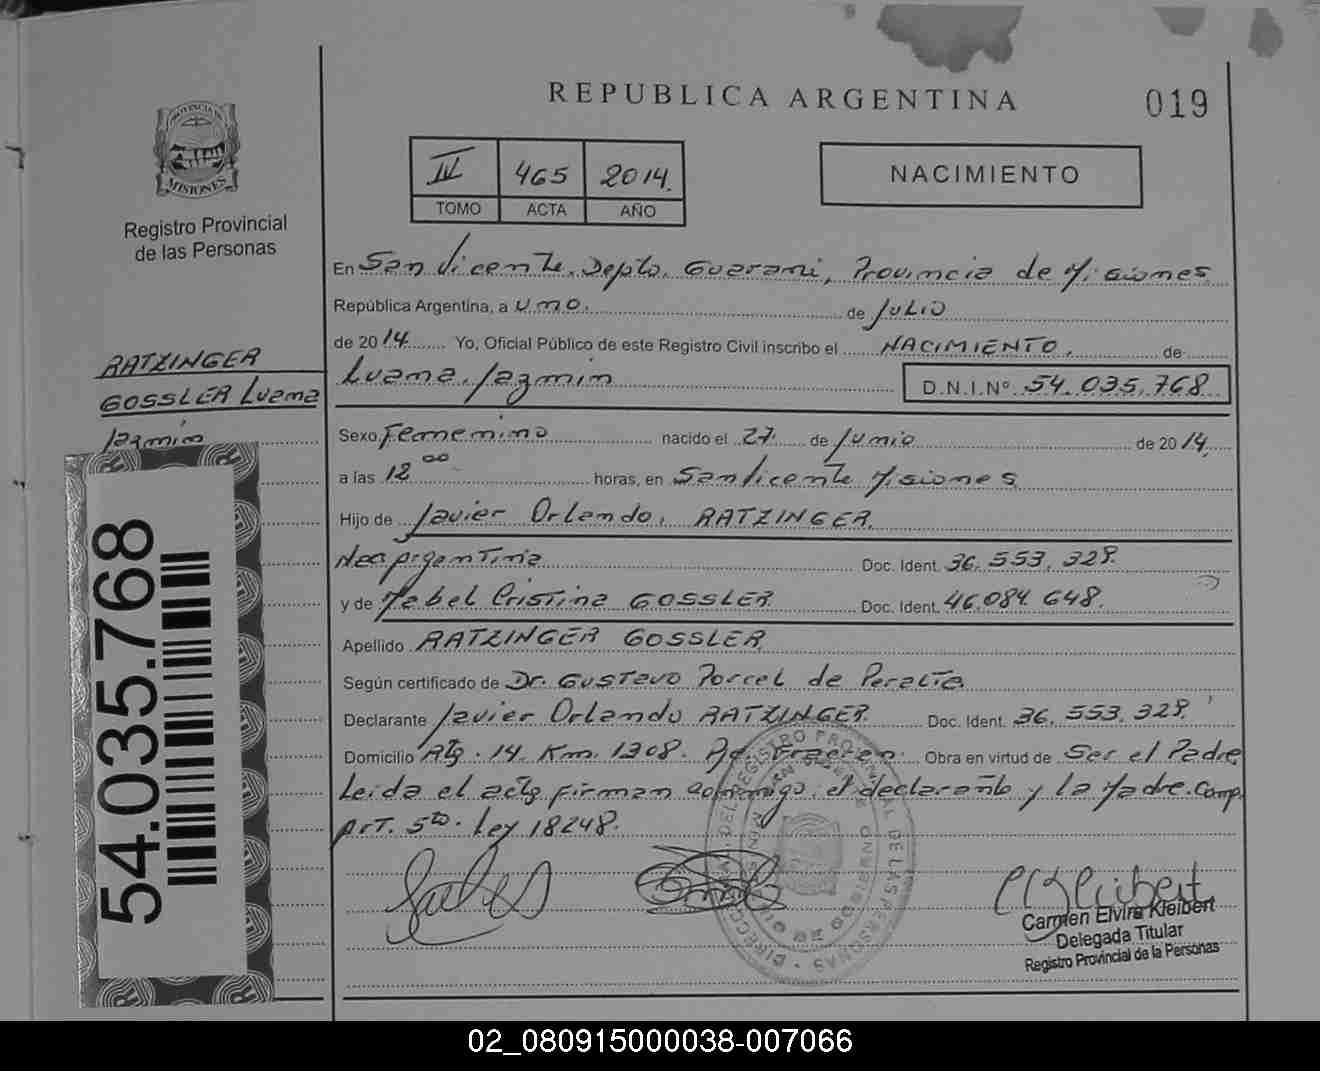 REPUBLICA ARGENTINA
019
PROVINCIA DE
MISIONES
Registro Provincial
de las Personas
IV 465 2014.
TOMO ACTA AÑO
NACIMIENTO
En San Vicente. Depto. Guarani, Provincia de Misiones
República Argentina, a uno. de Julio
de 2014 Yo, Oficial Público de este Registro Civil inscribo el NACIMIENTO, de
Luana Jazmin D.N.I.Nº 54.035.768
RATZINGER
GOSSLER Luana
Jazmin
Sexo Femenino nacido el 27 de Junio de 2014
a las 12 00 horas, en San Vicente Misiones
Hijo de Javier Orlando, RATZINGER.
Nac Argentina Doc. Ident. 36.553.328.
y de Mabel Cristina GOSSLER Doc. Ident. 46.084.648.
Apellido RATZINGER GOSSLER
Según certificado de Dr. Gustavo Porcel de Peralta
Declarante Javier Orlando RATZINGER Doc. Ident. 36.553.328
Domicilio Ruta. 14. Km. 1308. Obra en virtud de Ser el Padre
Leida el acta firman conmigo el declarante y la Madre. Comp.
Art. 5to. Ley 18248.
54.035.768
Carmen Elvira Kleibert
Delegada Titular
Registro Provincial de la Personas
02_080915000038-007066